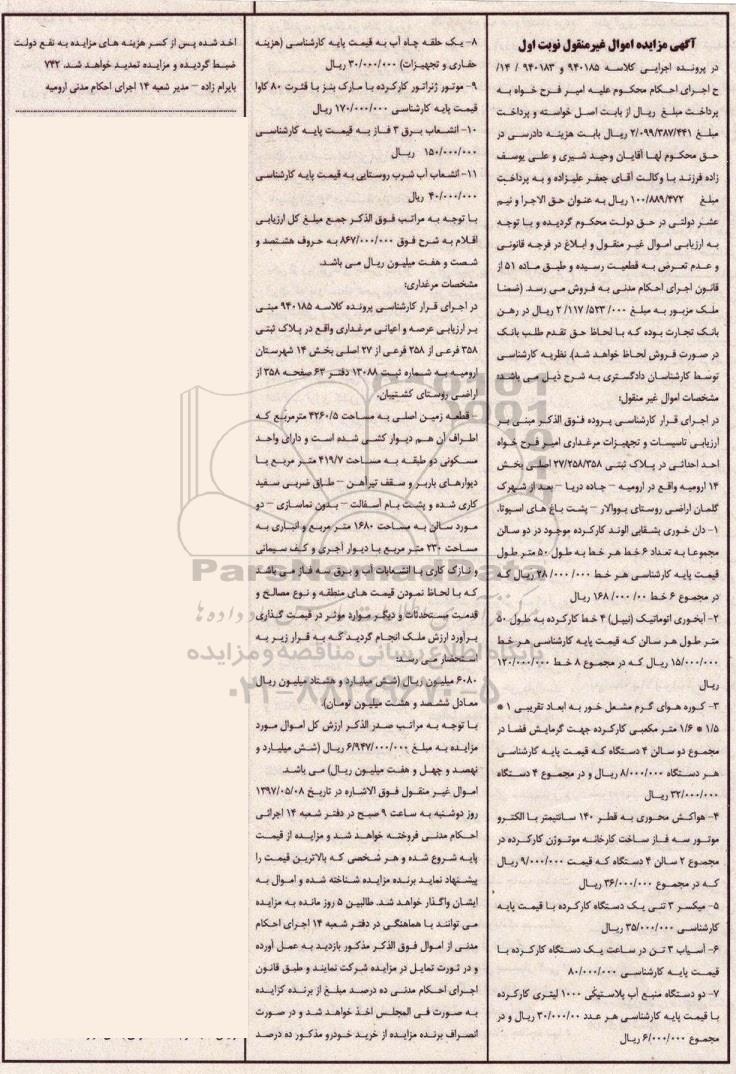 آگهی مزایده اموال غیرمنقول نوبت اول
در پرونده اجرایی کلاسه ۹۴۰۱۸۵ و ۹۴۰۱۸۳ / ۱۴/
ح اجرای احکام محکوم علیه امیر فرح خواه به
پرداخت مبلغ ریال از بابت اصل خواسته و پرداخت
مبلغ ۲/۰۹۹/۳۸۷/۴۴۱ ریال بابت هزینه دادرسی در
حق محکوم لها آقایان وحید شیری و علی یوسف
زاده فرزند با وکالت آقای جعفر علیزاده و به پرداخت
مبلغ ۱۰۰/۸۸۹/۴۷۲ ریال به عنوان حق الاجرا و نیم
عشر دولتی در حق دولت محکوم گردیده و با توجه
به ارزیابی اموال غیر منقول و ابلاغ در فرجه قانونی
و عدم تعرض به قطعیت رسیده و طبق ماده ۵۱ از
قانون اجرای احکام مدنی به فروش می رسد. (ضمنا
ملک مزبور به مبلغ ۰۰۰/ ۵۲۳/ ۱۱۷/ ۲ ریال در رهن
بانک تجارت بوده که با لحاظ حق تقدم طلب بانک
در صورت فروش لحاظ خواهد شد). نظریه کارشناسی
توسط کارشناسان دادگستری به شرح ذیل می باشد:
مشخصات اموال غیر منقول:
در اجرای قرار کارشناسی پروده فوق الذکر مبنی بر
ارزیابی تاسیسات و تجهیزات مرغداری امیر فرح خواه
احد احداثی در پلاک ثبتی ۲۷/۲۵۸/۳۵۸ اصلی بخش
۱۴ ارومیه واقع در ارومیه – جاده دریا – بعد از شهرک
گلمان اراضی روستای یووالار – پشت باغ های اسپوتا.
۱- دان خوری بشقابی الوند کارکرده موجود در دو سالن
مجموعا به تعداد ۶ خط هر خط به طول ۵۰ متر طول
قیمت پایه کارشناسی هر خط ۰۰۰/ ۰۰۰/ ۲۸ ریال که
در مجموع ۶ خط ۰۰/ ۰۰۰/ ۱۶۸ ریال
۲- آبخوری اتوماتیک (نیپل) ۴ خط کارکرده به طول ۵۰
متر طول هر سالن که قیمت پایه کارشناسی هر خط
۱۵/۰۰۰/۰۰۰ ریال که در مجموع ۸ خط ۱۲۰/۰۰۰/۰۰۰
ریال
۳- کوره هوای گرم مشعل خور به ابعاد تقریبی ۱ *
۱/۵ * ۱/۶ متر مکعبی کارکرده جهت گرمایش فضا در
مجموع دو سالن ۴ دستگاه که قیمت پایه کارشناسی
هر دستگاه ۸/۰۰۰/۰۰۰ ریال و در مجموع ۴ دستگاه
۳۲/۰۰۰/۰۰۰ ریال
۴- هواکش محوری به قطر ۱۴۰ سانتیمتر با الکترو
موتور سه فاز ساخت کارخانه موتوژن کارکرده در
مجموع ۲ سالن ۴ دستگاه که قیمت ۹/۰۰۰/۰۰۰ ریال
که در مجموع ۳۶/۰۰۰/۰۰۰ ریال
۵- میکسر ۳ تنی یک دستگاه کارکرده با قیمت پایه
کارشناسی ۳۵/۰۰۰/۰۰۰ ریال
۶- آسیاب ۳ تن در ساعت یک دستگاه کارکرده با
قیمت پایه کارشناسی ۸۰/۰۰۰/۰۰۰
۷- دو دستگاه منبع آب پلاستیکی ۱۰۰۰ لیتری کارکرده
با قیمت پایه کارشناسی هر عدد ۳۰/۰۰۰/۰۰ ریال و در
مجموع ۶/۰۰۰/۰۰۰ ریال
۸- یک حلقه چاه آب به قیمت پایه کارشناسی (هزینه
حفاری و تجهیزات) ۳۰/۰۰۰/۰۰۰ ریال
۹- موتور ژنراتور کارکرده با مارک بنز با قثرت ۸۰ کاوا
قیمت پایه کارشناسی ۱۷۰/۰۰۰/۰۰۰ ریال
۱۰- انشعاب برق ۳ فاز به قیمت پایه کارشناسی
۱۵۰/۰۰۰/۰۰۰ ریال
۱۱- انشعاب آب شرب روستایی به قیمت پایه کارشناسی
۴۰/۰۰۰/۰۰۰ ریال
با توجه به مراتب فوق الذکر جمع مبلغ کل ارزیابی
اقلام به شرح فوق ۸۶۷/۰۰۰/۰۰۰ به حروف هشتصد و
شصت و هفت میلیون ریال می باشد.
مشخصات مرغداری:
در اجرای قرار کارشناسی پرونده کلاسه ۹۴۰۱۸۵ مبنی
بر ارزیابی عرصه و اعیانی مرغداری واقع در پلاک ثبتی
۳۵۸ فرعی از ۲۵۸ فرعی از ۲۷ اصلی بخش ۱۴ شهرستان
ارومیه به شماره ثبت ۱۳۰۸۸ دفتر ۶۳ صفحه ۳۵۸ از
اراضی روستای کشتیبان.
- قطعه زمین اصلی به مساحت ۴۲۶۰/۵ مترمربع که
اطراف آن هم دیوار کشی شده است و دارای واحد
مسکونی دو طبقه به مساحت ۴۱۹/۷ متر مربع با
دیوارهای باربر و سقف تیرآهن – طاق ضربی سفید
کاری شده و پشت بام آسفالت – بدون نماسازی – دو
مورد سالن به مساحت ۱۶۸۰ متر مربع و انباری به
مساحت ۲۳۰ متر مربع با دیوار آجری و کف سیمانی
و نازک کاری با انشعابات آب و برق سه فاز می باشد
که با لحاظ نمودن قیمت های منطقه و نوع مصالح و
قدمت مستحدثات و دیگر موارد موثر در قیمت گذاری
برآورد ارزش ملک انجام گردید که به قرار زیر به
استحضار می رسد:
۶۰۸۰ میلیون ریال (شش میلیارد و هشتاد میلیون ریال
معادل ششصد و هشت میلیون تومان).
با توجه به مراتب صدر الذکر ارزش کل اموال مورد
مزایده به مبلغ ۶/۹۴۷/۰۰۰/۰۰۰ ریال (شش میلیارد و
نهصد و چهل و هفت میلیون ریال) می باشد.
اموال غیر منقول فوق الاشاره در تاریخ ۱۳۹۷/۰۵/۰۸
روز دوشنبه به ساعت ۹ صبح در دفتر شعبه ۱۴ اجرائی
احکام مدنی فروخته خواهد شد و مزایده از قیمت
پایه شروع شده و هر شخصی که بالاترین قیمت را
پیشنهاد نماید برنده مزایده شناخته شده و اموال به
ایشان واگذار خواهد شد. طالبین ۵ روز مانده به مزایده
می توانند با هماهنگی در دفتر شعبه ۱۴ اجرای احکام
مدنی از اموال فوق الذکر مذکور بازدید به عمل آورده
و در ثورت تمایل در مزایده شرکت نمایند و طبق قانون
اجرای احکام مدنی ده درصد مبلغ از برنده کزایده
به صورت فی المجلس اخذ خواهد شد و در صورت
انصراف برنده مزایده از خرید خودرو مذکور ده درصد
اخد شده پس از کسر هزینه های مزایده به نفع دولت
ضبط گردیده و مزایده تمدید خواهد شد. ۷۴۲
بایرام زاده – مدیر شعبه ۱۴ اجرای احکام مدنی ارومیه
ParsNamadData
پایگاه اطلاع رسانی مناقصه و مزایده
۰۲۱-۸۸۳۴۹۶۷۰-۵